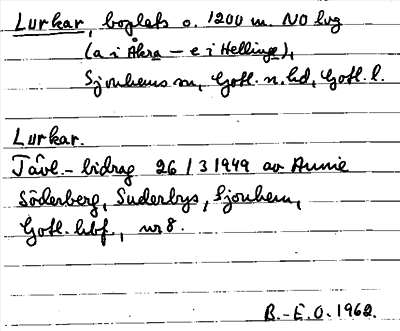 Lurkar, boplats o. 1200 m. NO lvg
(a i Åkra – e i Hellinge),
Sjonhems sn, Gotl. n. hd, Gotl. l.
Lurkar.
Tävl.-bidrag 26/3 1949 av Annie
Söderberg, Suderbys, Sjonhem,
Gotl. hbf., nr 8.
B.-E. O. 1962.